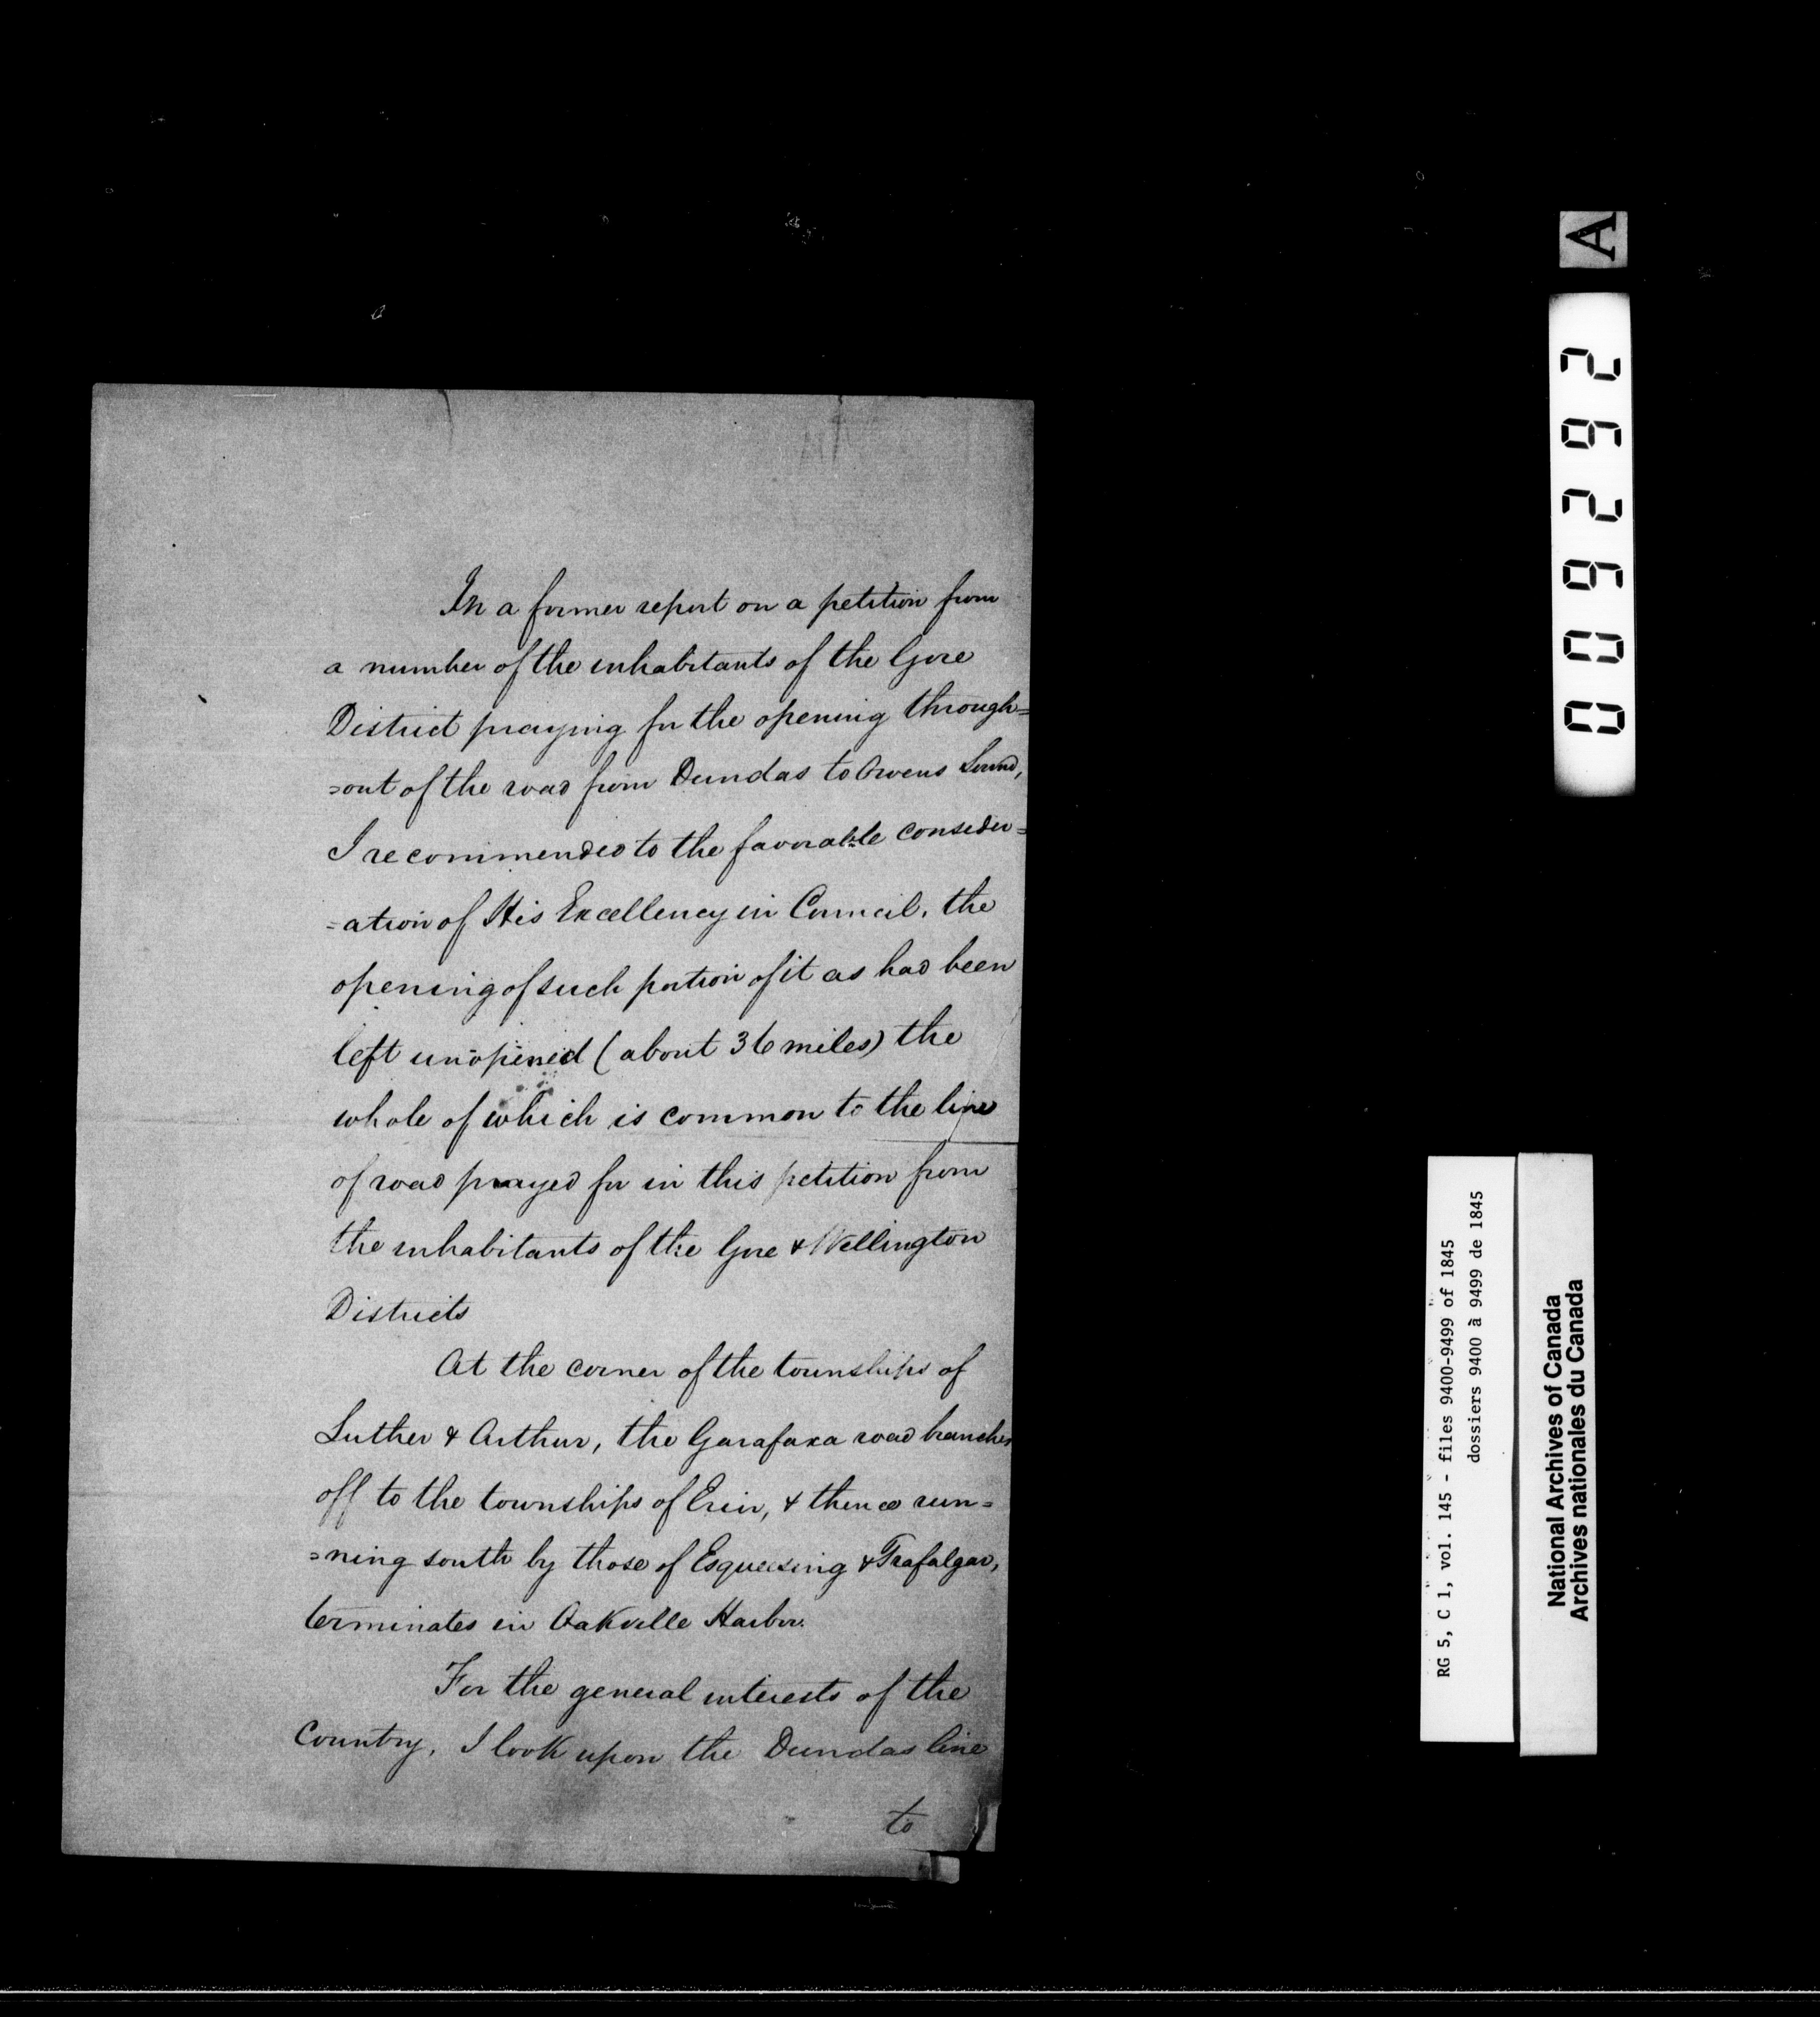 In a former report on a petition from
a number of the inhabitants of the Gore
District praying for the opening through=
=out of the road from Dundas to Owens Sound,
I recommended to the favorable consider=
=ation of His Excellency in Council, the
opening of such portion of it as had been
left unopened (about 36 miles) the
whole of which is common to the line
of road prayed for in this petition from
the inhabitants of the Gore & Wellington
Districts
At the corner of the townships of
Luther & Arthur, the Garafaxa road branches
off to the townships of Erin, & thence run=
=ning south by those of Esqueesing & Trafalgar,
terminates in Oakville Harbor.
For the general interests of the
Country, I look upon the Dundas line
to
A
262600
RG 5, C 1, vol. 145 - files 9400-9499 of 1845
dossiers 9400 à 9499 de 1845
National Archives of Canada
Archives nationales du Canada